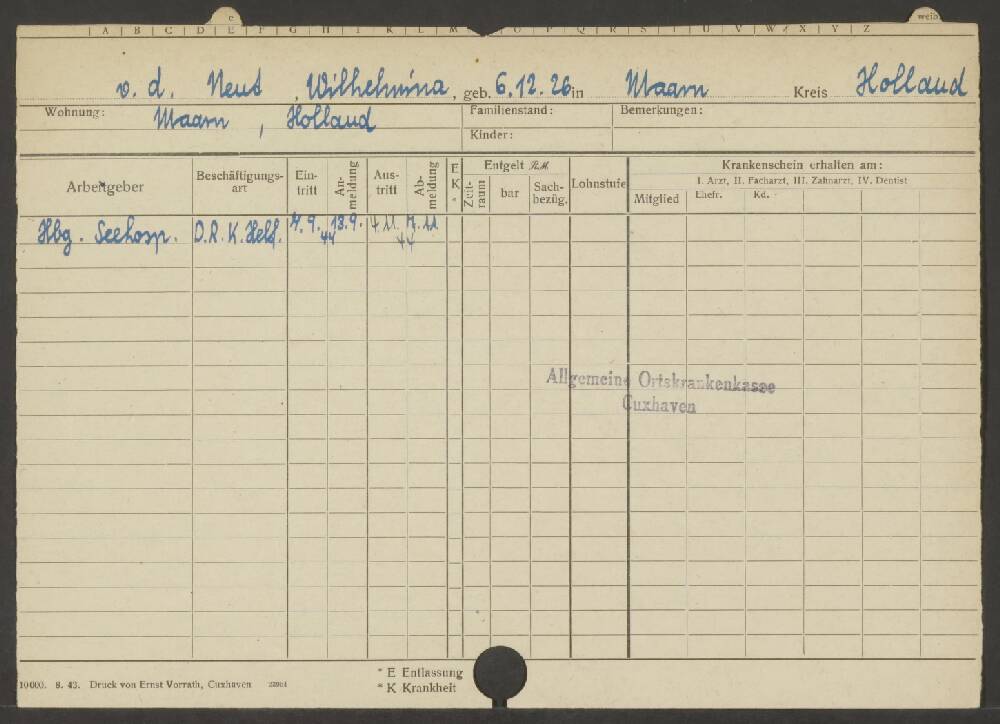 e weib
A B C D E F G H I K L M O P Q R S U V W X Y Z
v. d. Neut, Wilhelmina, geb. 6.12.26 in Maarn Kreis Holland
Wohnung: Maarn, Holland Familienstand: Bemerkungen:
Kinder:
Arbeitgeber Beschäftigungsart Eintritt Anmeldung Austritt Abmeldung E K * Entgelt RM Zeitraum bar Sachbezüg. Lohnstufe Krankenschein erhalten am:
I. Arzt, II. Facharzt, III. Zahnarzt, IV. Dentist
Mitglied Ehefr. Kd.
Hbg. Seehosp. D.R.K. Helf. 4.9. 44 13.9. 4.11. 44 7.11.
Allgemeine Ortskrankenkasse
Cuxhaven
* E Entlassung
* K Krankheit
10 000. 8. 43. Druck von Ernst Vorrath, Cuxhaven